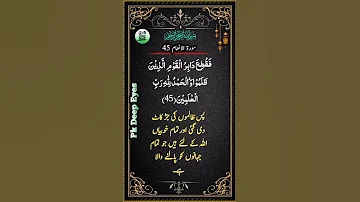 سورۃ الانعام 45
فَقُطِعَ دَابِرُ الْقَوْمِ الَّذِیْنَ
ظَلَمُوْاؕ وَ الْحَمْدُ لِلّٰهِ رَبِّ
الْعٰلَمِیْنَ(45)
پس ظالموں کی جڑ کاٹ
دی گئی اور تمام خوبیاں
اللہ کے لئے ہیں جو تمام
جہانوں کو پالنے والا
ہے۔
Pk Deep Eyes